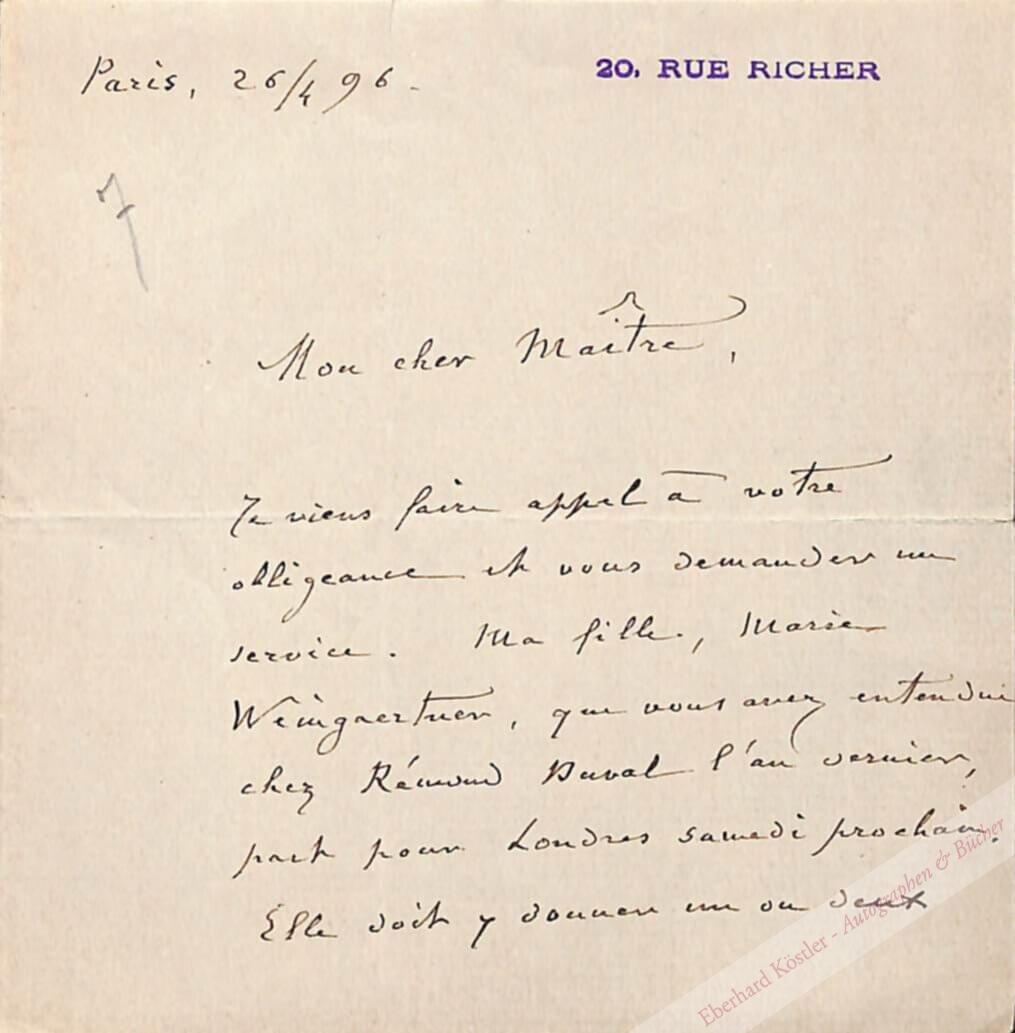 Paris, 26/4 96.
20, RUE RICHER
7
Mon cher Maître,
Je viens faire appel à votre
obligeance et vous demander un
service. Ma fille, Marie
Weingaertner, que vous avez entendue
chez Rémond Duval l'an dernier,
part pour Londres samedi prochain.
Elle doit y donner un ou deux
Eberhard Köstler - Autographen & Bücher